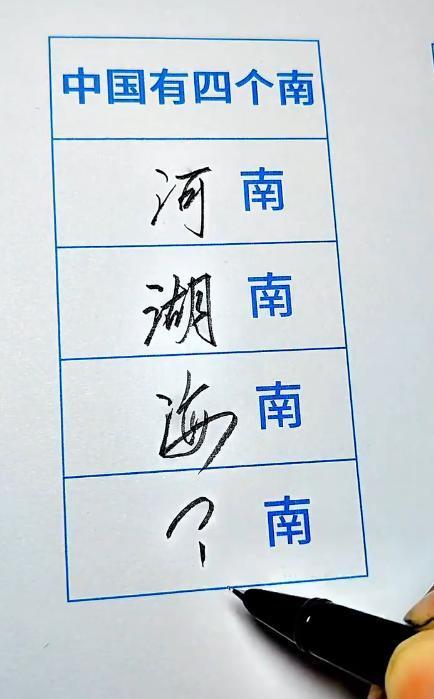 中国有四个南
河南
湖南
海南
?南